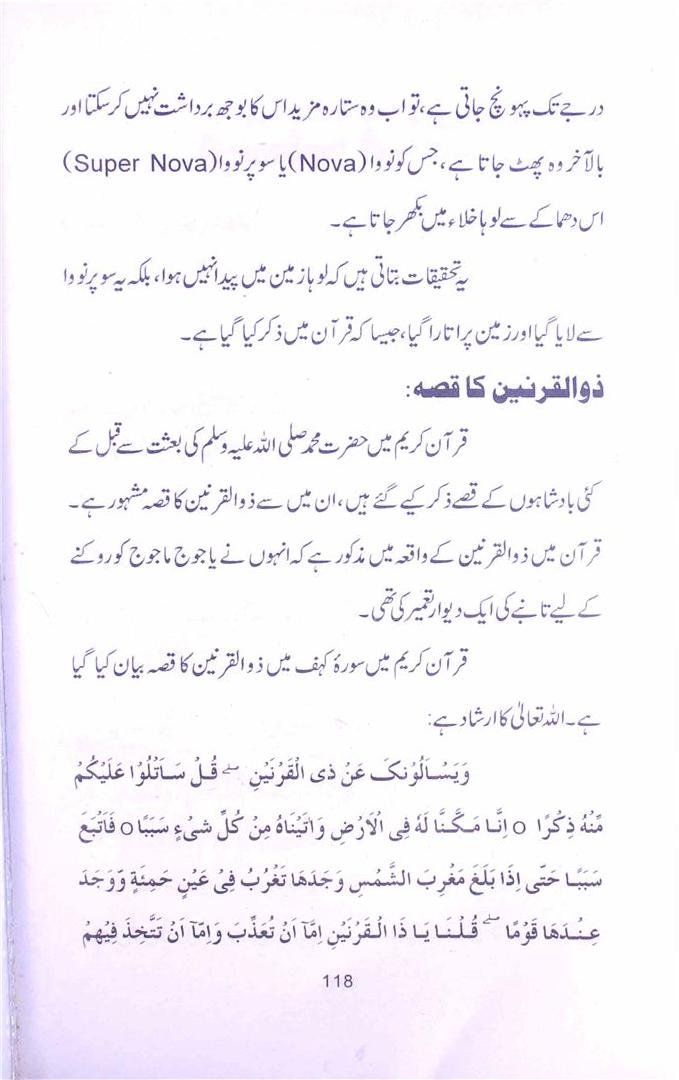 درجے تک پہونچ جاتی ہے، تو اب وہ ستارہ مزید اس کا بوجھ برداشت نہیں کرسکتا اور
بالآخر وہ پھٹ جاتا ہے، جس کو نووا (Nova) یا سوپر نووا (Super Nova)
اس دھماکے سے لوہا خلاء میں بکھر جاتا ہے۔
یہ تحقیقات بتاتی ہیں کہ لوہا زمین میں پیدا نہیں ہوا، بلکہ یہ سوپر نووا
سے لایا گیا اور زمین پر اتارا گیا، جیسا کہ قرآن میں ذکر کیا گیا ہے۔
ذوالقرنین کا قصہ:
قرآن کریم میں حضرت محمد صلی اللہ علیہ وسلم کی بعثت سے قبل کے
کئی بادشاہوں کے قصے ذکر کیے گئے ہیں، ان میں سے ذوالقرنین کا قصہ مشہور ہے۔
قرآن میں ذوالقرنین کے واقعہ میں مذکور ہے کہ انہوں نے یاجوج ماجوج کو روکنے
کے لیے تانبے کی ایک دیوار تعمیر کی تھی۔
قرآن کریم میں سورۂ کہف میں ذوالقرنین کا قصہ بیان کیا گیا
ہے۔ اللہ تعالیٰ کا ارشاد ہے:
وَيَسْـاَلُوْنَکَ عَنْ ذِی الْقَرْنَيْنِ ۖ قُلْ سَاَتْلُوْا عَلَيْكُمْ
مِّنْهُ ذِكْرًا o اِنَّا مَكَّنَّا لَهٗ فِی الْاَرْضِ وَاٰتَيْنَاهُ مِنْ كُلِّ شَیْءٍ سَبَبًا o فَاَتْبَعَ
سَبَبًا حَتّٰی اِذَا بَلَغَ مَغْرِبَ الشَّمْسِ وَجَدَهَا تَغْرُبُ فِیْ عَيْنٍ حَمِئَةٍ وَّوَجَدَ
عِنْدَهَا قَوْمًا ۖ قُلْنَا يَا ذَا الْقَرْنَيْنِ اِمَّآ اَنْ تُعَذِّبَ وَاِمَّآ اَنْ تَتَّخِذَ فِيْهِمْ
118